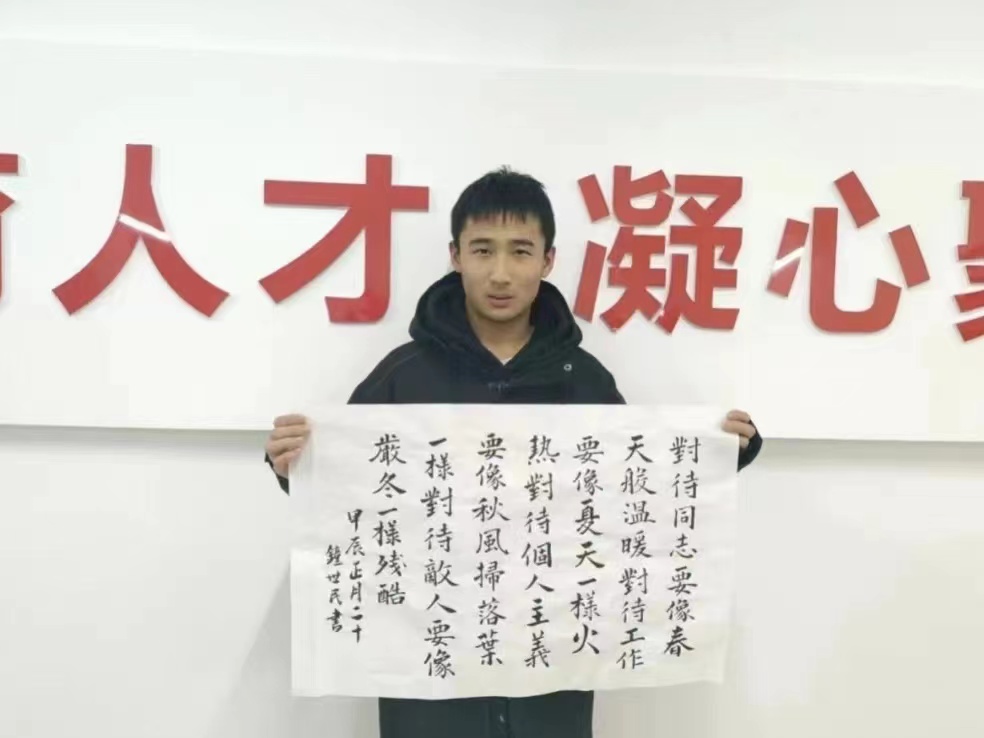 人才 凝心
對待同志要像春
天般温暖對待工作
要像夏天一樣火
熱對待個人主義
要像秋風掃落葉
一樣對待敵人要像
嚴冬一樣残酷
甲辰正月二十
鐘世民書